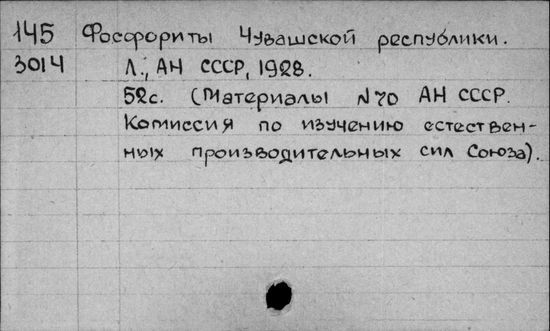 145 Фосфориты Чувашской республики.
3014 Л., АН СССР, 1928.
52с. (Материалы N70 АН СССР.
Комиссия по изучению естествен-
ных производительных сил Союза).